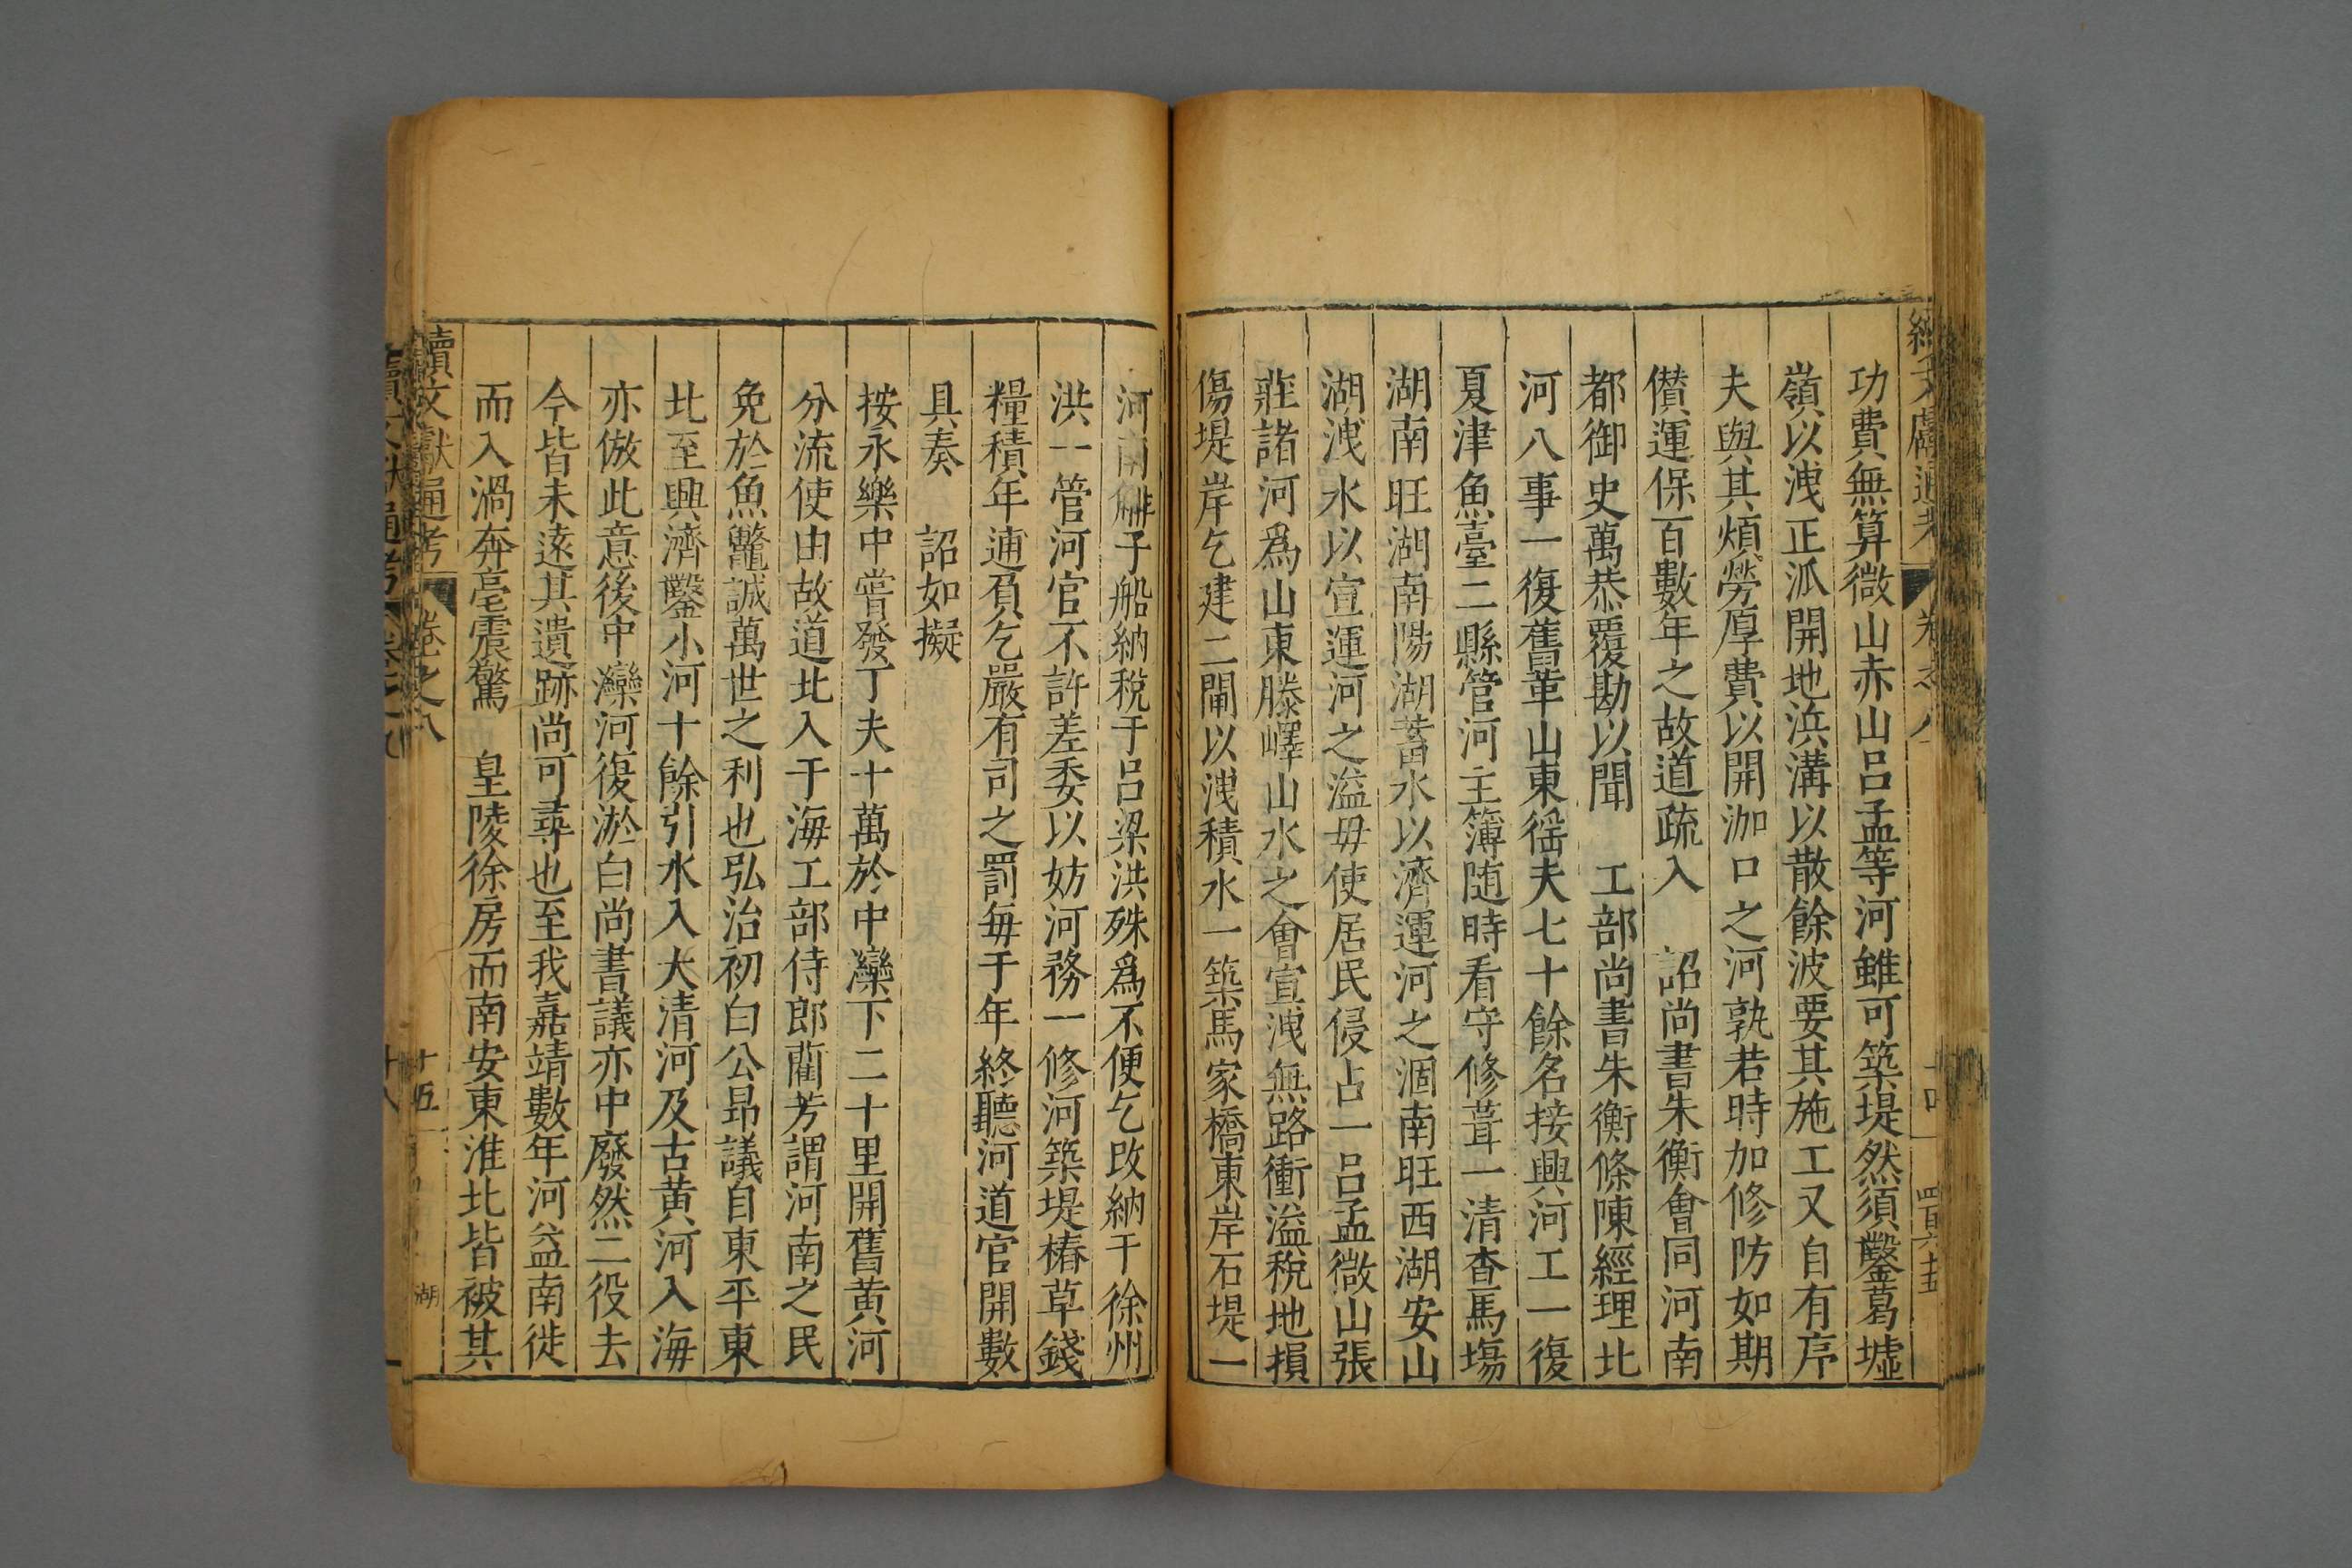 功費無算微山赤山呂孟等河雖可築堤然須鑿葛墟
嶺以洩正派開地浜溝以散餘波要其施工又自有序
夫與其煩勞厚費以開泇口之河孰若時加修防如期
儧運保百數年之故道疏入 詔尚書朱衡會同河南
都御史萬恭覆勘以聞 工部尚書朱衡條陳經理北
河八事一復舊革山東徭夫七十餘名接興河工一復
夏津魚臺二縣管河主簿随時看守修葺一清查馬塲
湖南旺湖南陽湖蓄水以濟運河之涸南旺西湖安山
湖洩水以宣運河之溢毋使居民侵占一呂孟微山張
莊諸河爲山東滕嶧山水之會宣洩無路衝溢稅地損
傷堤岸乞建二閘以洩積水一築馬家橋東岸石堤一
河南觧子船納稅于呂梁洪殊爲不便乞改納于徐州
洪一管河官不許差委以妨河務一修河築堤樁草錢
糧積年逋負乞嚴有司之罰每于年終聽河道官開數
具奏 詔如擬
按永樂中嘗發丁夫十萬於中灤下二十里開舊黄河
分流使由故道北入于海工部侍郎藺芳謂河南之民
免於魚鼈誠萬世之利也弘治初白公昂議自東平東
北至興濟鑿小河十餘引水入大清河及古黄河入海
亦倣此意後中灤河復淤白尚書議亦中廢然二役去
今皆未遠其遺跡尚可尋也至我嘉靖數年河益南徙
而入渦奔亳震驚 皇陵徐房而南安東淮北皆被其
續文獻通考 卷之八 十五 湖